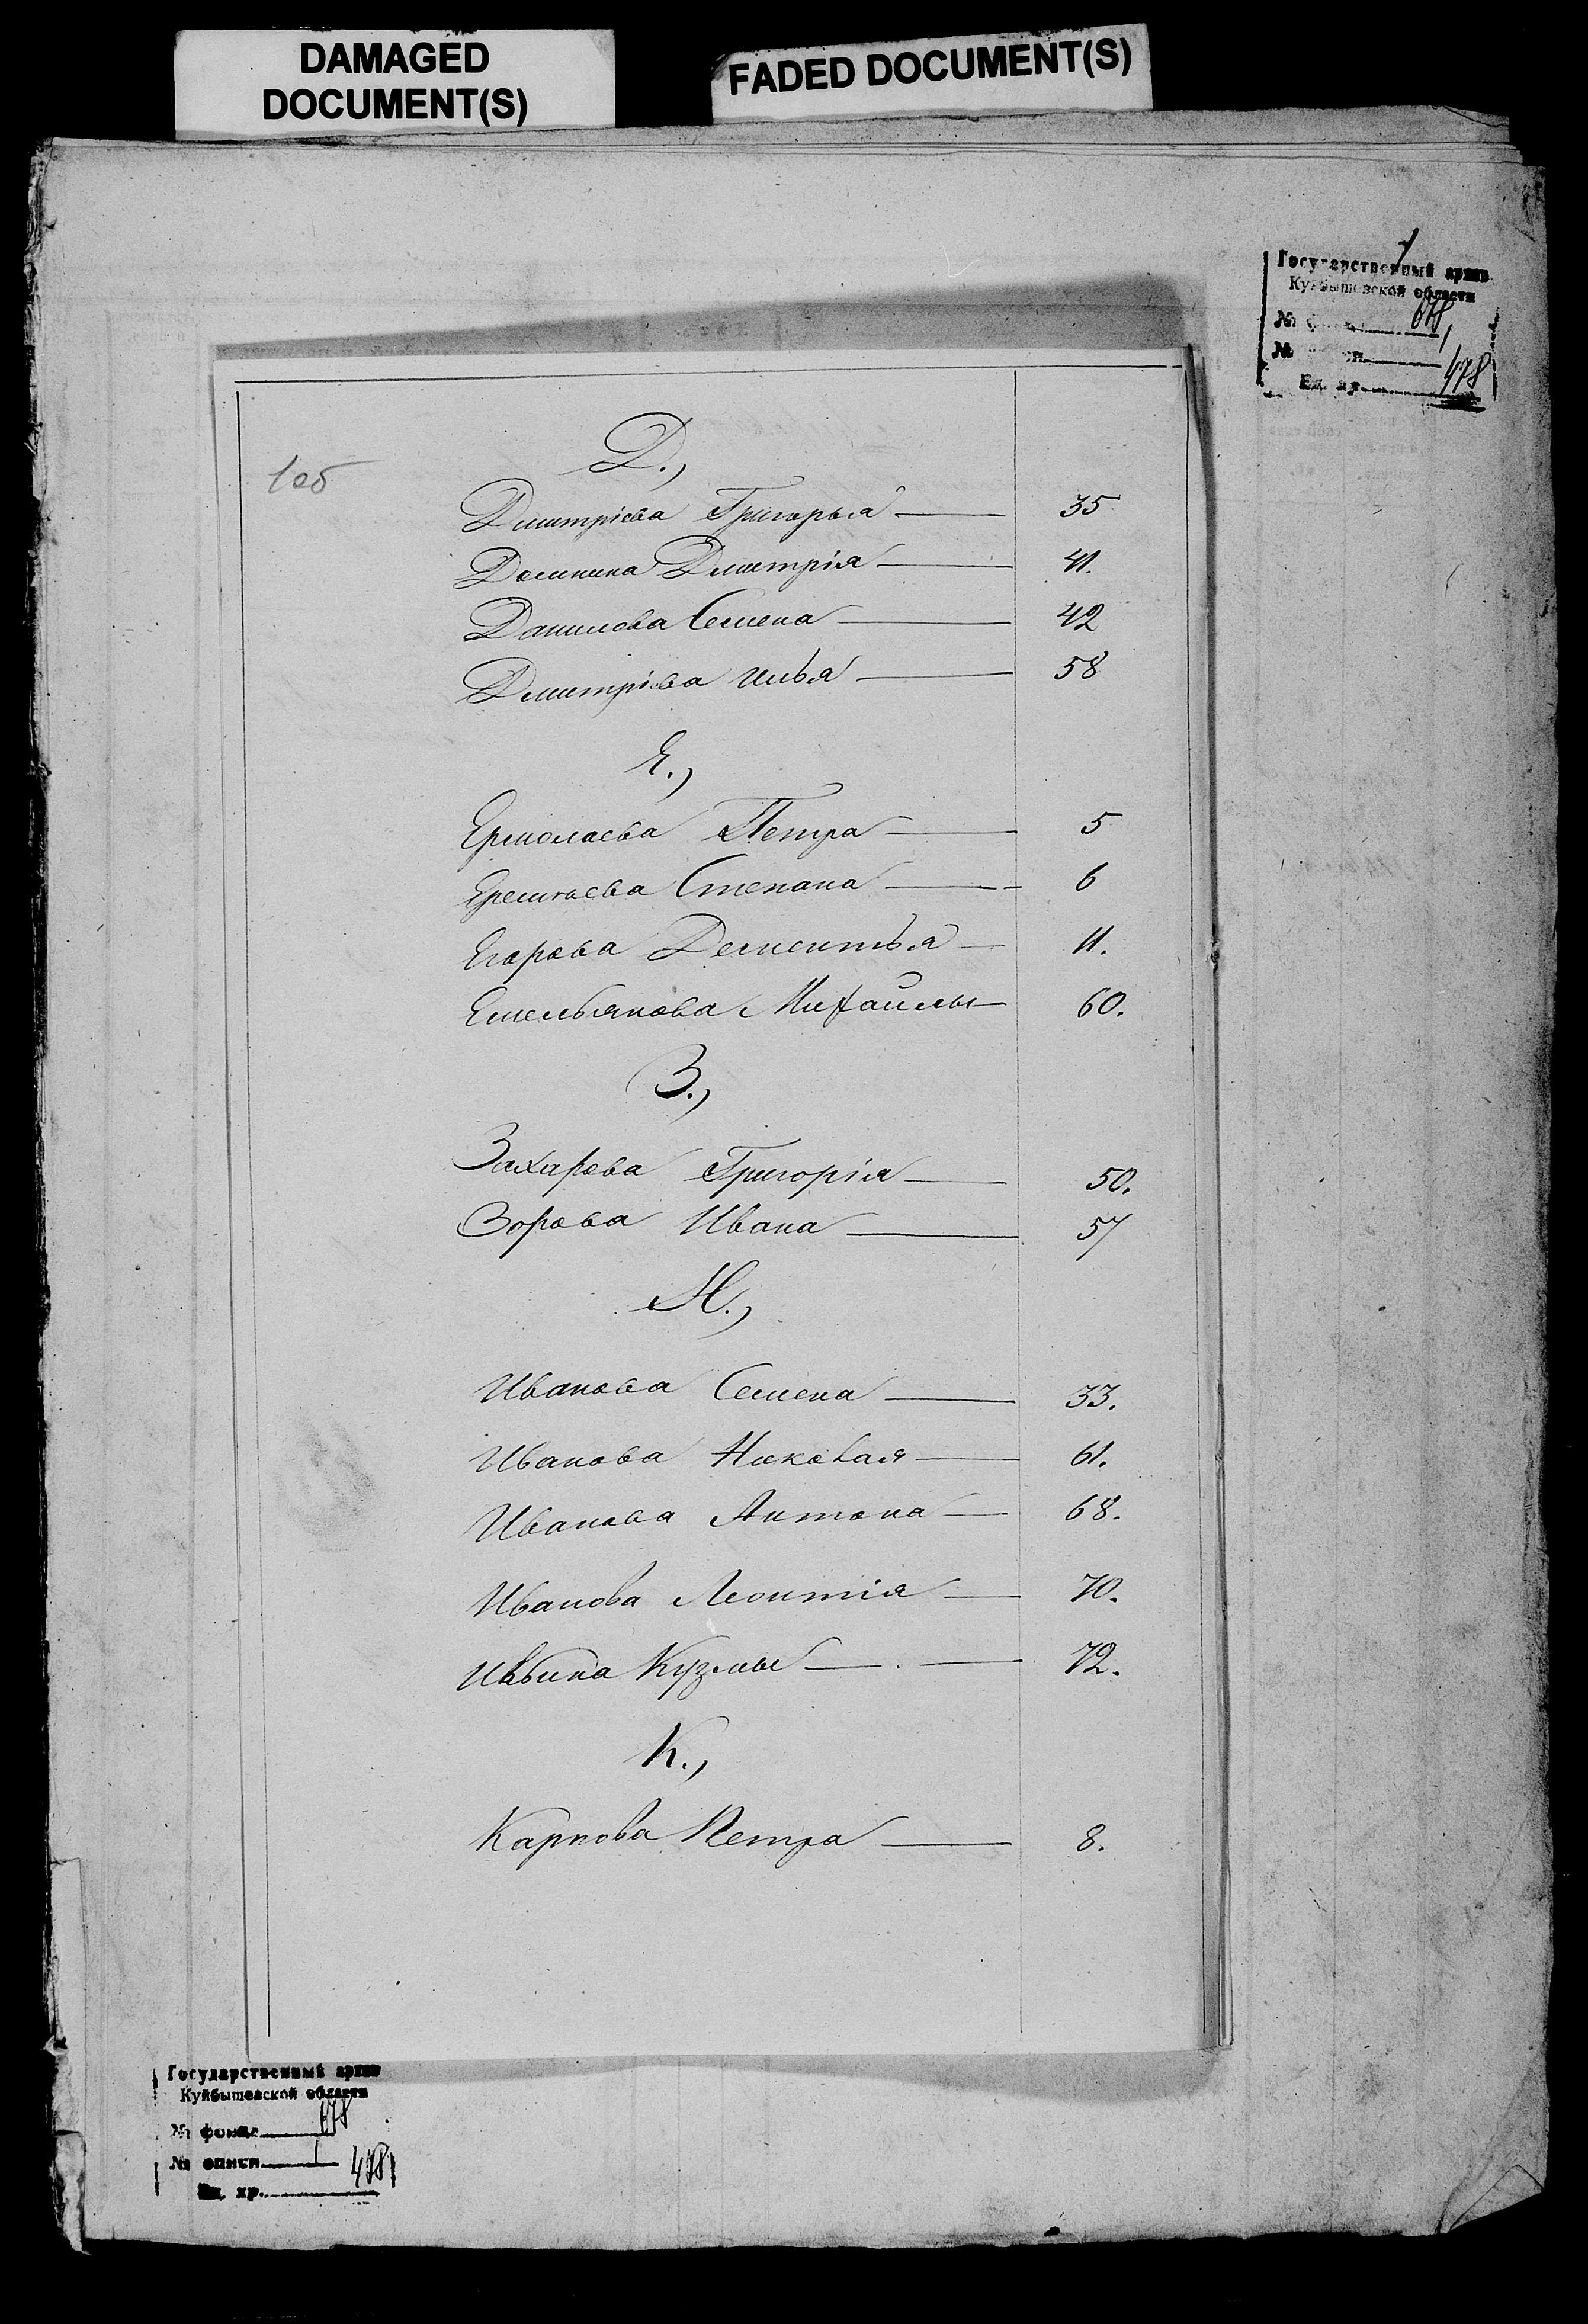 DAMAGED
DOCUMENT(S)
FADED DOCUMENT(S)
1
Государственный архив
Куйбышевской области
№ 678
1
№
Ед. хр. 478
1об
Д.,
Дмитріева Григорья 35
Домнина Дмитрія 41.
Данилова Семена 42
Дмитріева Илья 58
Е.,
Ермолаева Петра 5
Еремѣева Степана 6
Егорова Дементья 11.
Емельянова Михайлы 60.
З.,
Захарова Григорія 50.
Зорова Ивана 57
И.,
Иванова Семена 33.
Иванова Николая 61.
Иванова Антона 68.
Иванова Леонтія 70.
Ильина Кузмы 72.
К.,
Карпова Петра 8.
Государственный архив
Куйбышевской области
№ фонда 678
№ описи 1
Ед. хр. 478